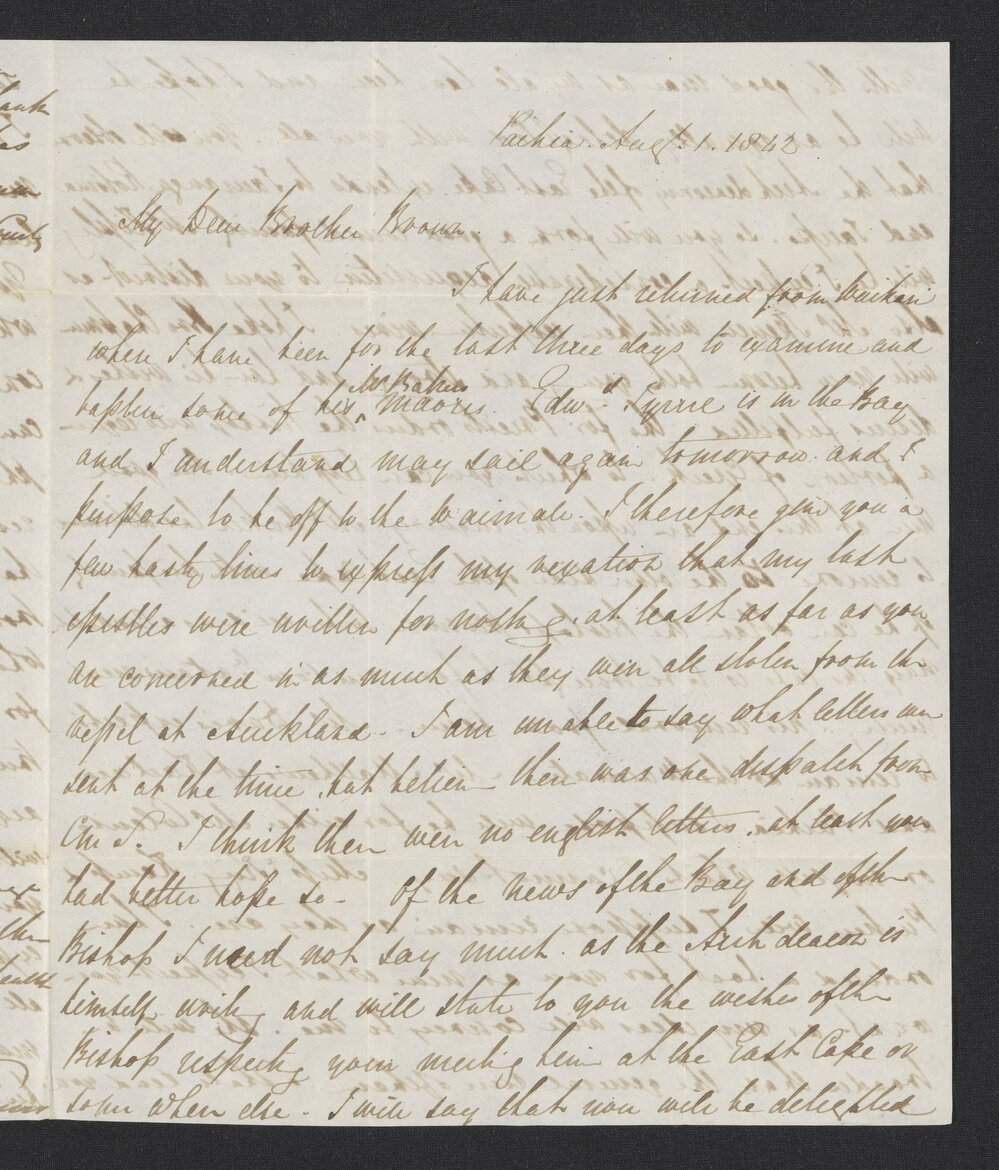 Paihia. Augt. 1. 1842
My Dear Brother Brown.
I have just returned from Waikari
where I have been for the last three days to examine and
baptize some of his Mr Bakers maoris. Edwd. Tyrie is in the Bay
and I understand may sail again tomorrow. and I
purpose to be off to the Waimate. I therefore give you a
few hasty lines to express my vexation that my last
epistles were written for nothg, at least as far as you
are concerned in as much as they were all stolen from the
vessel at Auckland. I am unable to say what letters were
sent at the time, but believe there was one dispatch from
C M S. I think there were no english letters, at least you
had better hope so - Of the news of the Bay and of the
Bishop I need not say much. as the Archdeacon is
himself writing and will state to you the wishes of the
Bishop respectg your meetig him at the East Cape or
some where else. I will say that you will be delighted